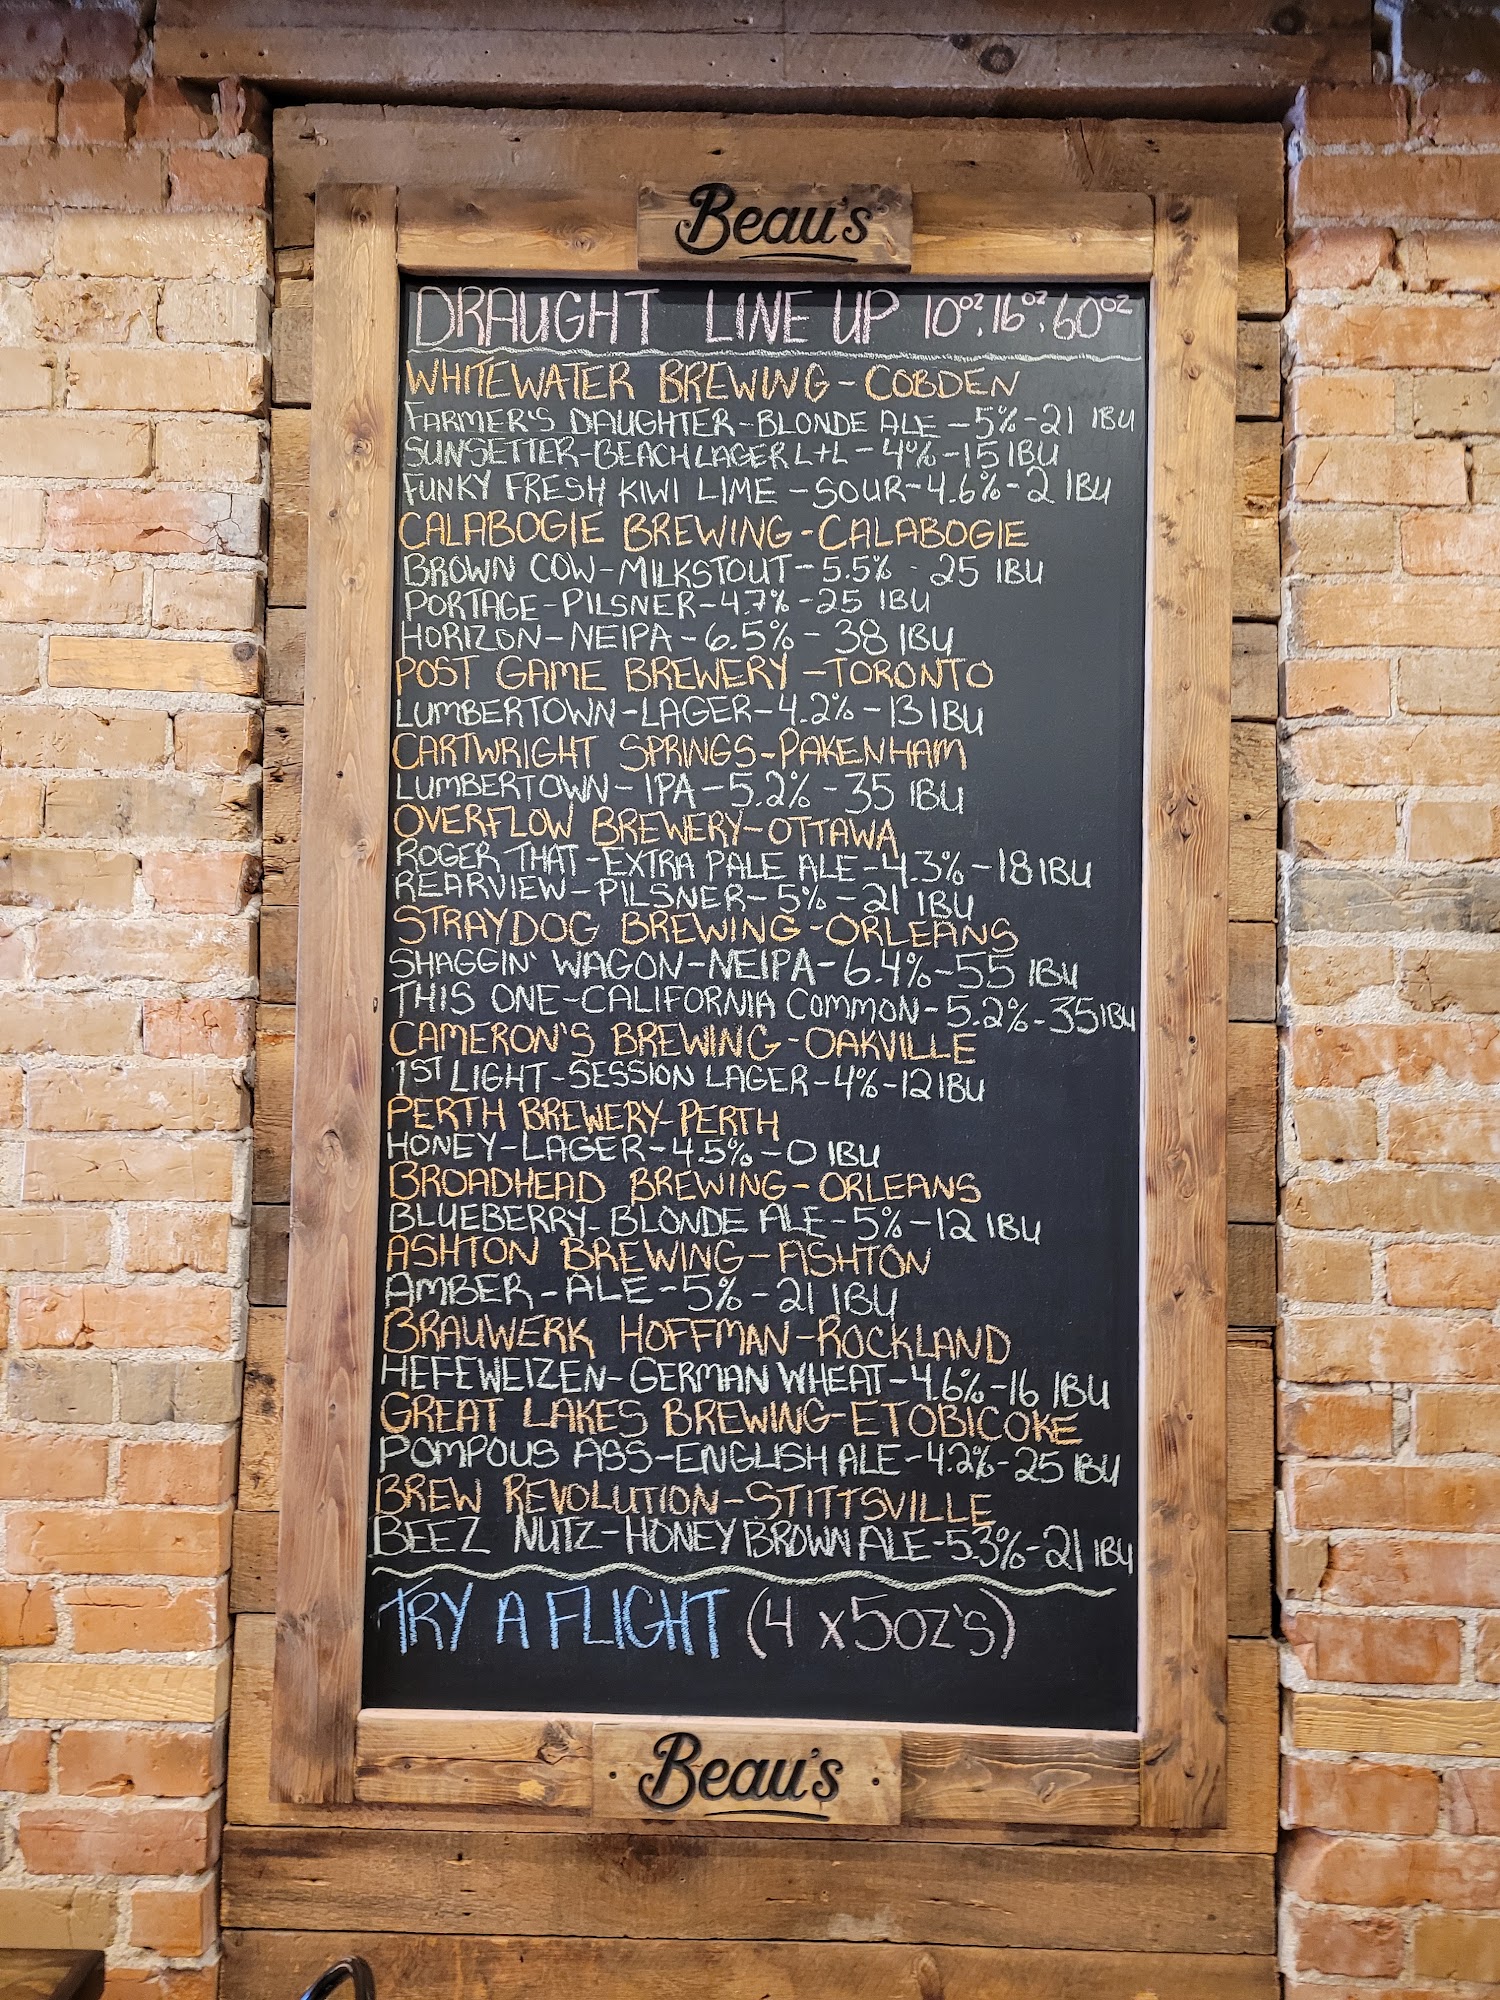 Beau's
DRAUGHT LINE UP 10oz, 16oz, 60oz
WHITEWATER BREWING - COBDEN
FARMER'S DAUGHTER - BLONDE ALE - 5% - 21 IBU
SUNSETTER - BEACH LAGER L+L - 4% - 15 IBU
FUNKY FRESH KIWI LIME - SOUR - 4.6% - 2 IBU
CALABOGIE BREWING - CALABOGIE
BROWN COW - MILKSTOUT - 5.5% - 25 IBU
PORTAGE - PILSNER - 4.7% - 25 IBU
HORIZON - NEIPA - 6.5% - 38 IBU
POST GAME BREWERY - TORONTO
LUMBERTOWN - LAGER - 4.2% - 13 IBU
CARTWRIGHT SPRINGS - PAKENHAM
LUMBERTOWN - IPA - 5.2% - 35 IBU
OVERFLOW BREWERY - OTTAWA
ROGER THAT - EXTRA PALE ALE - 4.3% - 18 IBU
REARVIEW - PILSNER - 5% - 21 IBU
STRAYDOG BREWING - ORLEANS
SHAGGIN' WAGON - NEIPA - 6.4% - 55 IBU
THIS ONE - CALIFORNIA COMMON - 5.2% - 35 IBU
CAMERON'S BREWING - OAKVILLE
1ST LIGHT - SESSION LAGER - 4% - 12 IBU
PERTH BREWERY - PERTH
HONEY - LAGER - 4.5% - 0 IBU
BROADHEAD BREWING - ORLEANS
BLUEBERRY - BLONDE ALE - 5% - 12 IBU
ASHTON BREWING - ASHTON
AMBER - ALE - 5% - 21 IBU
BRAUWERK HOFFMAN - ROCKLAND
HEFEWEIZEN - GERMAN WHEAT - 4.6% - 16 IBU
GREAT LAKES BREWING - ETOBICOKE
POMPOUS ASS - ENGLISH ALE - 4.2% - 25 IBU
BREW REVOLUTION - STITTSVILLE
BEEZ NUTZ - HONEY BROWN ALE - 5.3% - 21 IBU
TRY A FLIGHT (4 x 5oz's)
Beau's